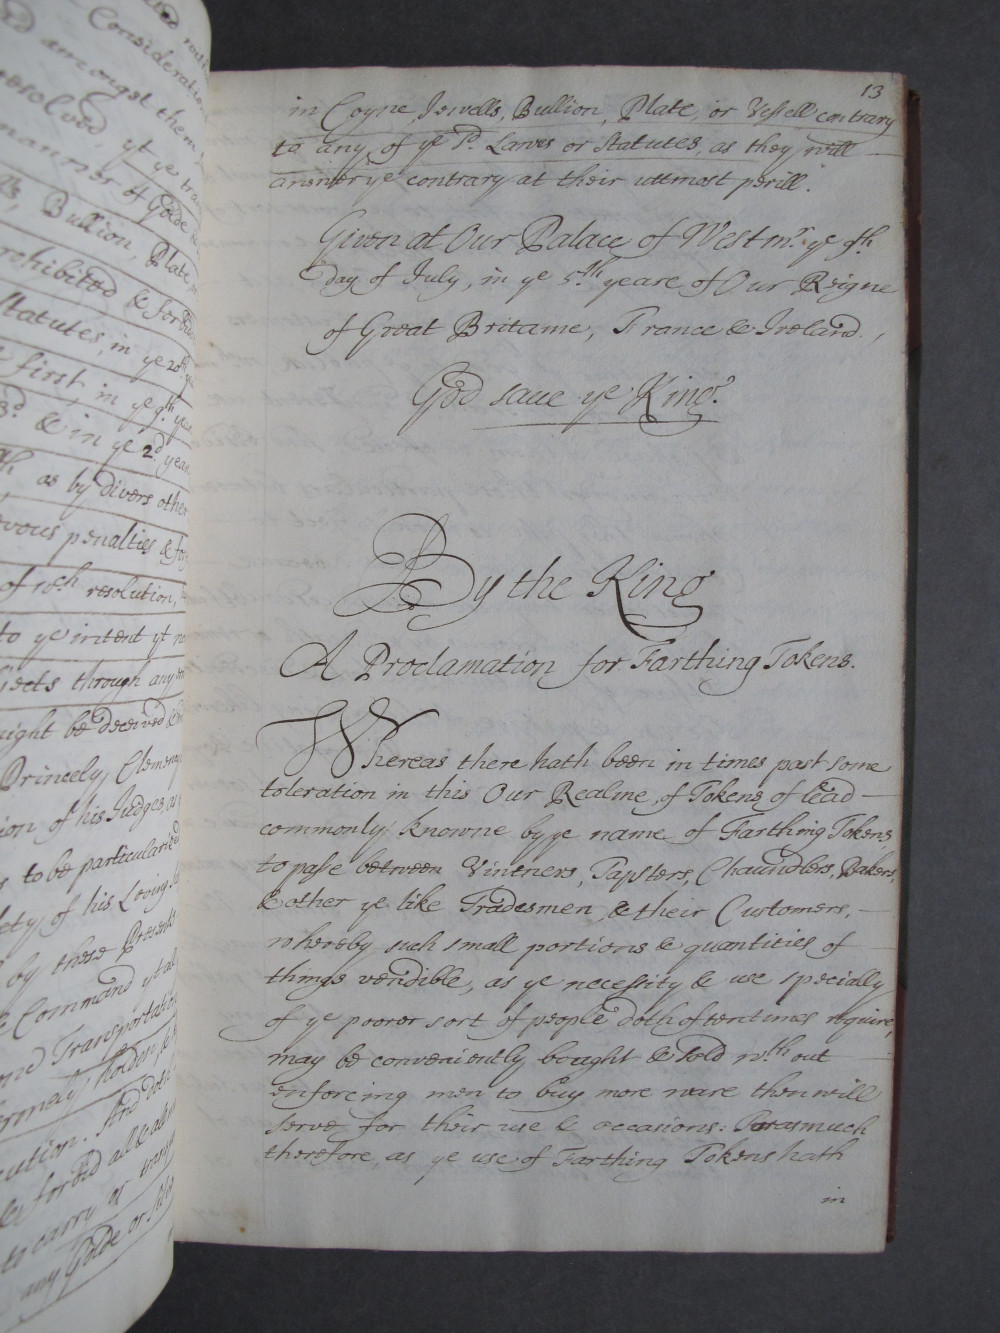 ted
Consideration
d amongst them
resolved, yt ye tra
manner of Golde
Bullion, Plate,
rohibited & forbid
Statutes, in ye 20th
first, in ye 9th yea
3d. & in ye 2d. year
as by divers other
evous penalties & for
of wch resolution,
to ye intent yt no
jects through any
ight be deceived &
Princely Clemency
ion of his Judges, as
s to be particularized
ety of his Loving Su
by these Presents
Command yt al
Transportatio
rmely, holden,
cution. And doth
& forbid all & all
to carry or trans
any Golde or Silv
13
in Coyne, Jewells, Bullion, Plate, or Vessell contrary
to any of ye sd. Lawes or Statutes, as they will
answer ye contrary at their uttmost perill.
Given at Our Palace of Westmr. ye 9th
day of July, in ye 5th yeare of Our Reigne
of Great Britaine, France & Ireland.
God save ye King.
By the King
A Proclamation for Farthing Tokens.
Whereas there hath been in times past some
toleration in this Our Realme, of Tokens of lead
commonly knowne by ye name of Farthing Tokens,
to passe between Vintners, Tapsters, Chaundlers, Bakers,
& other ye like Tradesmen, & their Customers,
whereby such small portions & quantities of
things vendible, as ye necessity & use specially
of ye poorer sort of people doth oftentimes require,
may be conveniently bought & sold wth out
enforcing men to buy more ware then will
serve for their use & occasions: Forasmuch
therefore, as ye use of Farthing Tokens hath
in